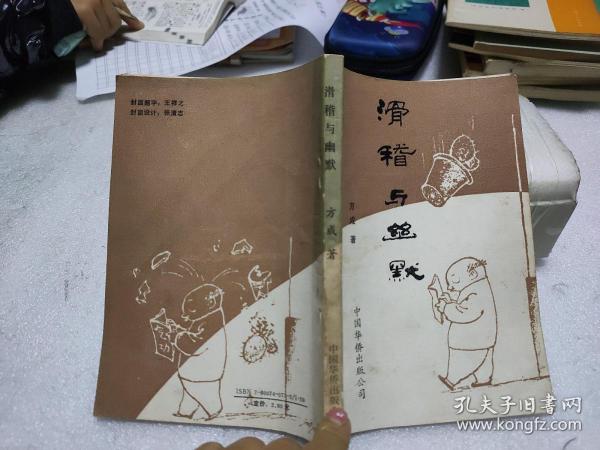 封面题字：王祥之
封面设计：张清志
滑稽与幽默
方成 著
中国华侨出版
滑稽与幽默
方成 著
中国华侨出版公司
定价：2.90元
孔夫子旧书网
www.kongfz.com